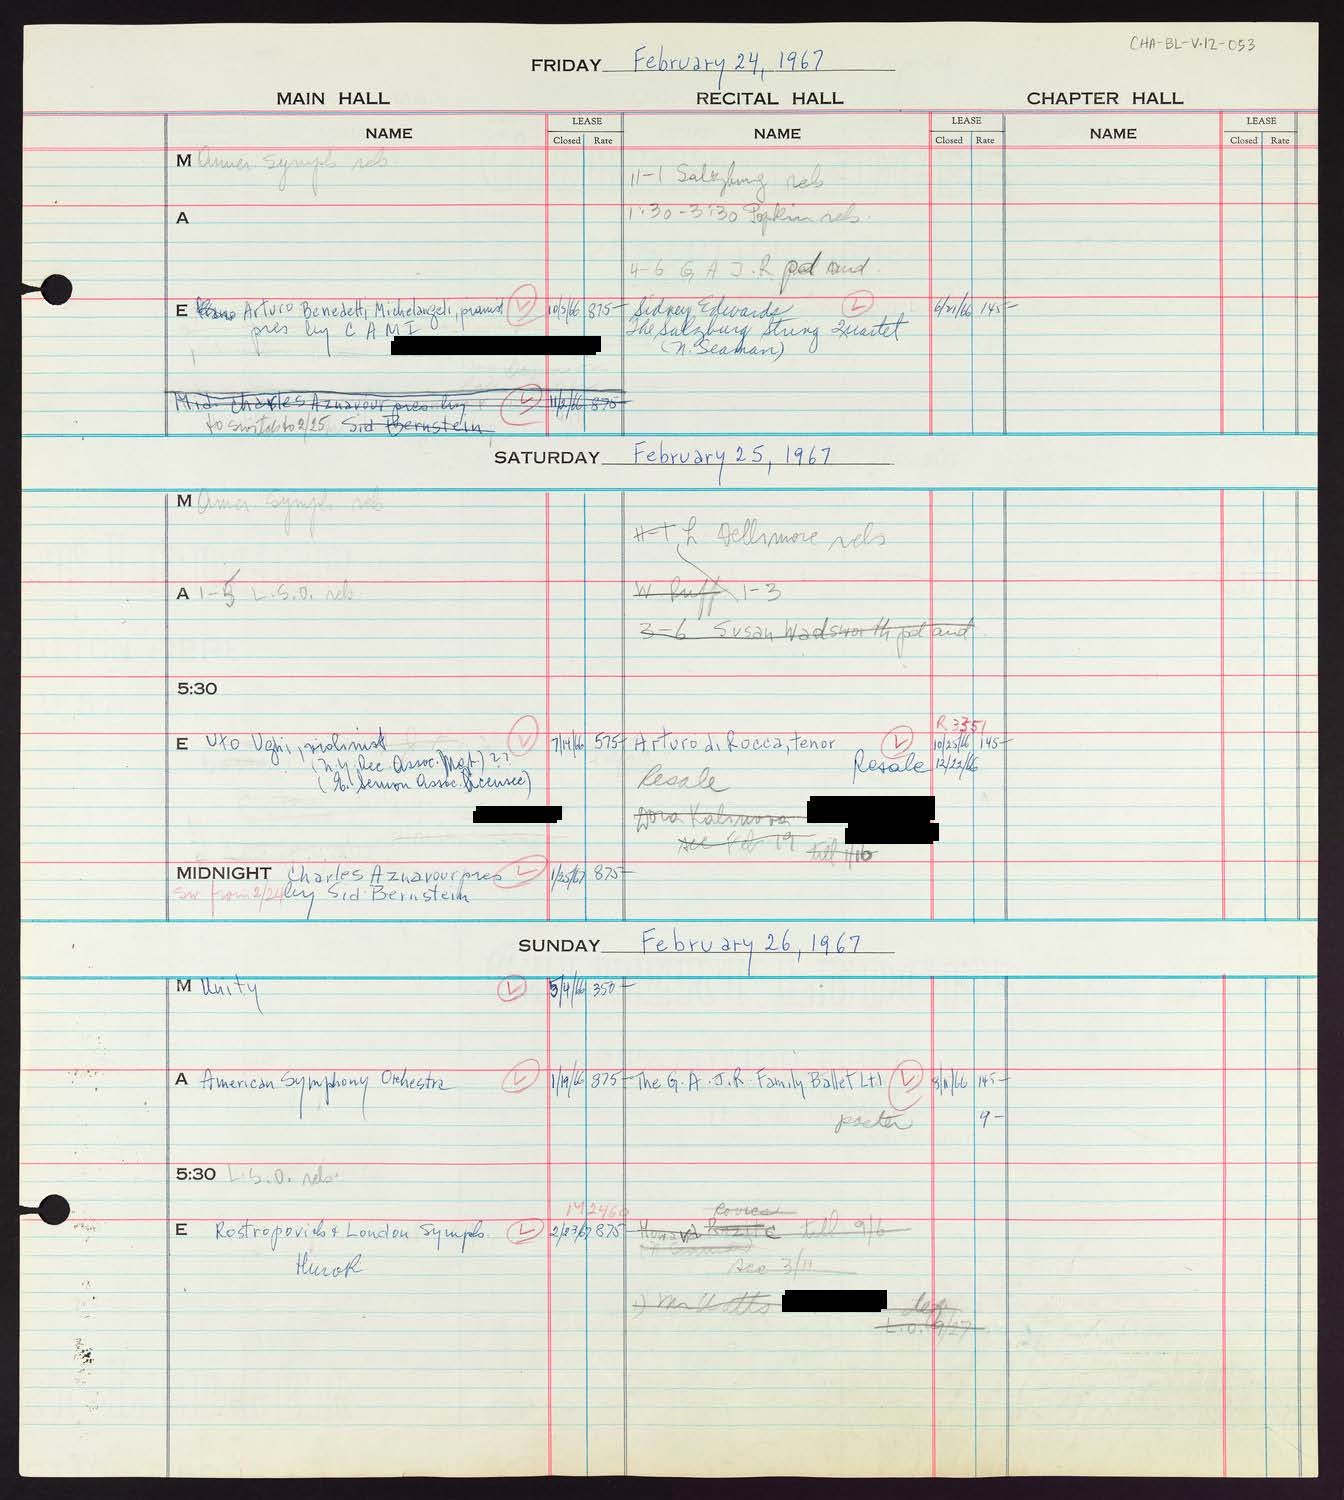 CHA-BL-V.12-053
FRIDAY February 24, 1967
MAIN HALL RECITAL HALL CHAPTER HALL
NAME LEASE Closed Rate NAME LEASE Closed Rate NAME LEASE Closed Rate
M Amer. Symph reh
11-1 Salzburg reh
A 1:30-3:30 Popkin reh.
4-6 G A J. R pd aud.
E Arturo Benedetti Michelangeli, pianist 10/3/66 875- Sidney Edwards 6/21/66 145-
pres by C A M I The Salzburg String Quartet
(N. Seaman)
Mid. Charles Aznavour pres. by 11/3/66 875-
to switch to 2/25 Sid Bernstein
SATURDAY February 25, 1967
M Amer. Symph reh
11-1 L Dellimore reh
A 1-5 L.S.O. reh W Ruff 1-3
3-6 Susan Wadsworth pd aud
5:30
R 3351
E Uto Ughi, violinist 7/14/66 575- Arturo di Rocca, tenor 10/25/66 145-
(N.Y. Rec. Assoc. Mgt.) ?? Resale 12/22/66
Assoc. licensee) Resale
Dora Kalinova
see Feb 19 till 1/10
MIDNIGHT Charles Aznavour pres 1/25/67 875-
sw from 2/24 by Sid Bernstein
SUNDAY February 26, 1967
M Unity 5/4/66 350-
A American Symphony Orchestra 1/19/66 875- The G. A. J. R. Family Ballet Ltd 8/11/66 145-
poster 9-
5:30 L.S.O. reh.
E Rostropovich & London Symph. 2/23/67 875- till 9/6
Hurok
see 3/11
Watts
L.O. 9/27